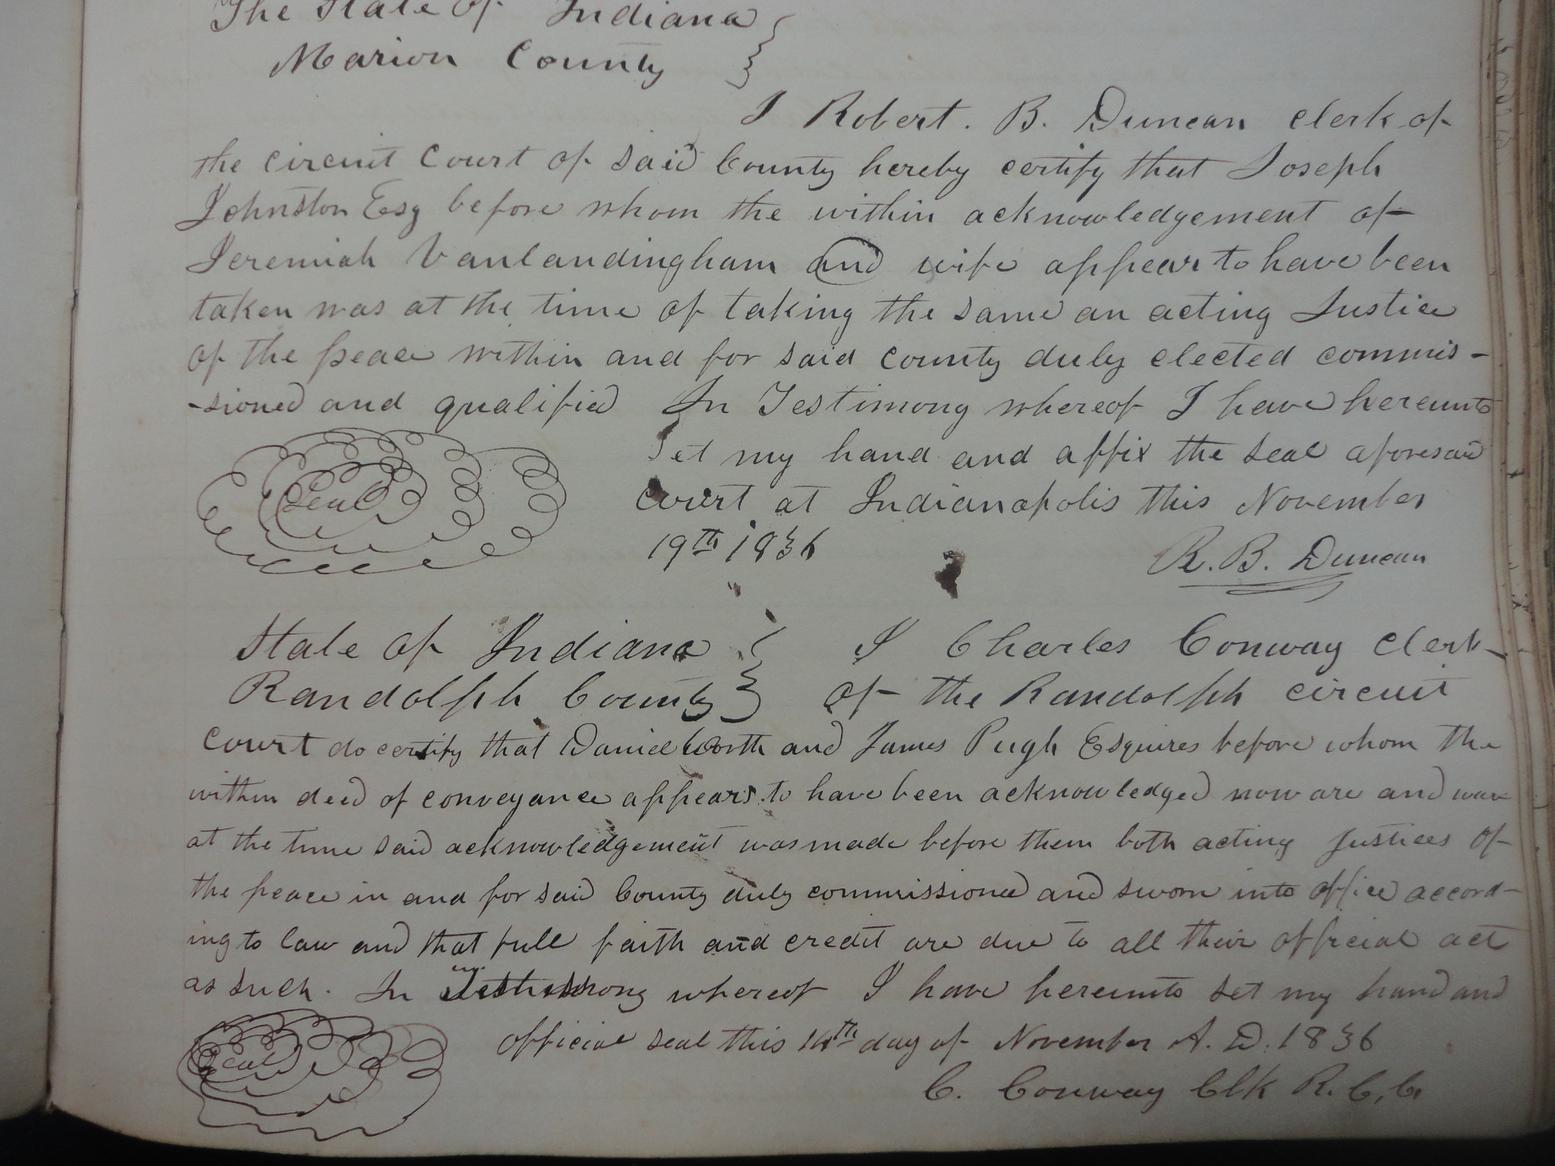 The State of Indiana
Marion County
I Robert. B. Duncan clerk of
the circuit Court of said County hereby certify that Joseph
Johnston Esq before whom the within acknowledgement of
Jeremiah Vanlandingham and wife appear to have been
taken was at the time of taking the same an acting Justice
of the peace within and for said county duly elected commis-
-sioned and qualified In Testimony whereof I have hereunto
Set my hand and affix the seal aforesaid
Seal
court at Indianapolis this November
19th 1836
R. B. Duncan
State of Indiana
Randolph County
I Charles Conway Clerk
of the Randolph circuit
court do certify that Daniel Worth and James Pugh Esquires before whom the
within deed of conveyance appears to have been acknowledged now are and was
at the time said acknowledgement was made before them both acting Justices of
the peace in and for said County duly commissioned and sworn into office accord-
ing to law and that full faith and credit are due to all their official act
as such. In Testimony whereof I have hereunto set my hand and
Seal
official seal this day of November A. D. 1836
C. Conway Clk R. C. C.